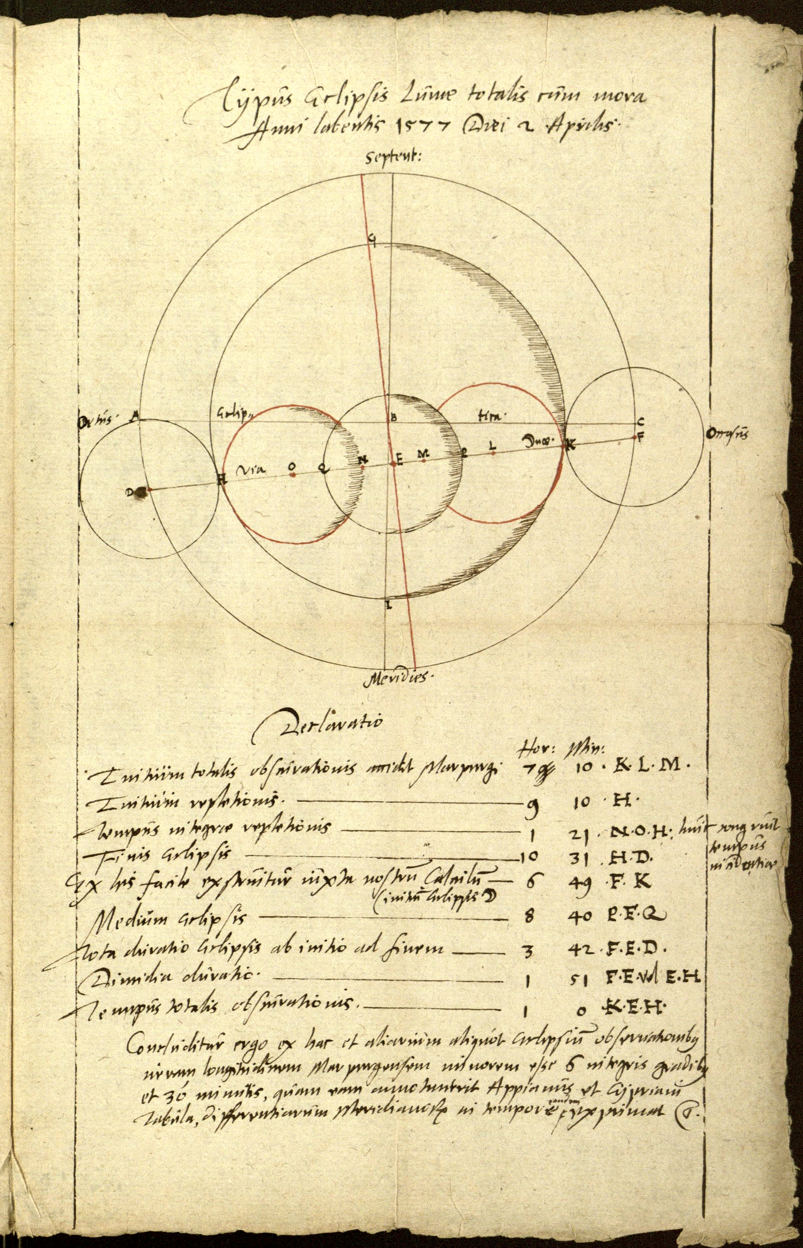 Typus Eclipsis Lunae totalis cum mora
Anni labentis 1577 Diei 2 Aprilis.
Septent:
G
Ortus. A Eclip B tica. C Occasus
D H Via O Q N E M P L Duae. K F
I
Meridies.
Declaratio
Hor: Min:
Initium totalis obscurationis accidit Marpurgi 7 10 . K. L. M.
Initium repletionis. 9 10 H.
Tempus integrae repletionis 1 21 . N. O. H.
tempus
Finis Eclipsis 10 31 H. D.
Ex his facile exstruitur iuxta nostrum Calculum 6 49 . F. K
(initium Eclipsis
Medium Eclipsis 8 40 P. E. Q
Tota duratio Eclipsis ab initio ad finem 3 42 . F. E. D.
Dimidia duratio. 1 51 F. E vel E. H
Tempus totalis obscurationis. 1 0 K. E. H.
Concluditur ergo ex hac et aliarum aliquot Eclipsium observationibus
veram longitudinem Marpurgensem minorem esse 6 integris gradibus
et 30 minutis, quam eam annotaverit Appianus et Cypriani
Tabula, differentiarum Meridianorum in tempore exprimat